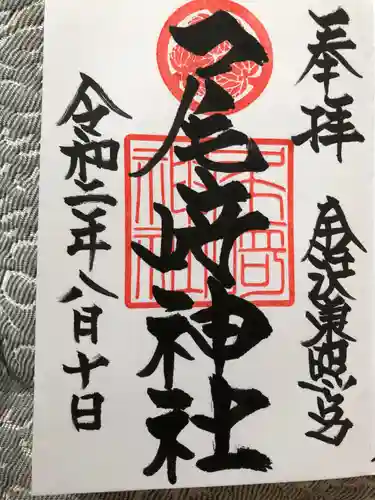 奉拝
金沢東照宮
尾﨑神社
令和二年八月十日